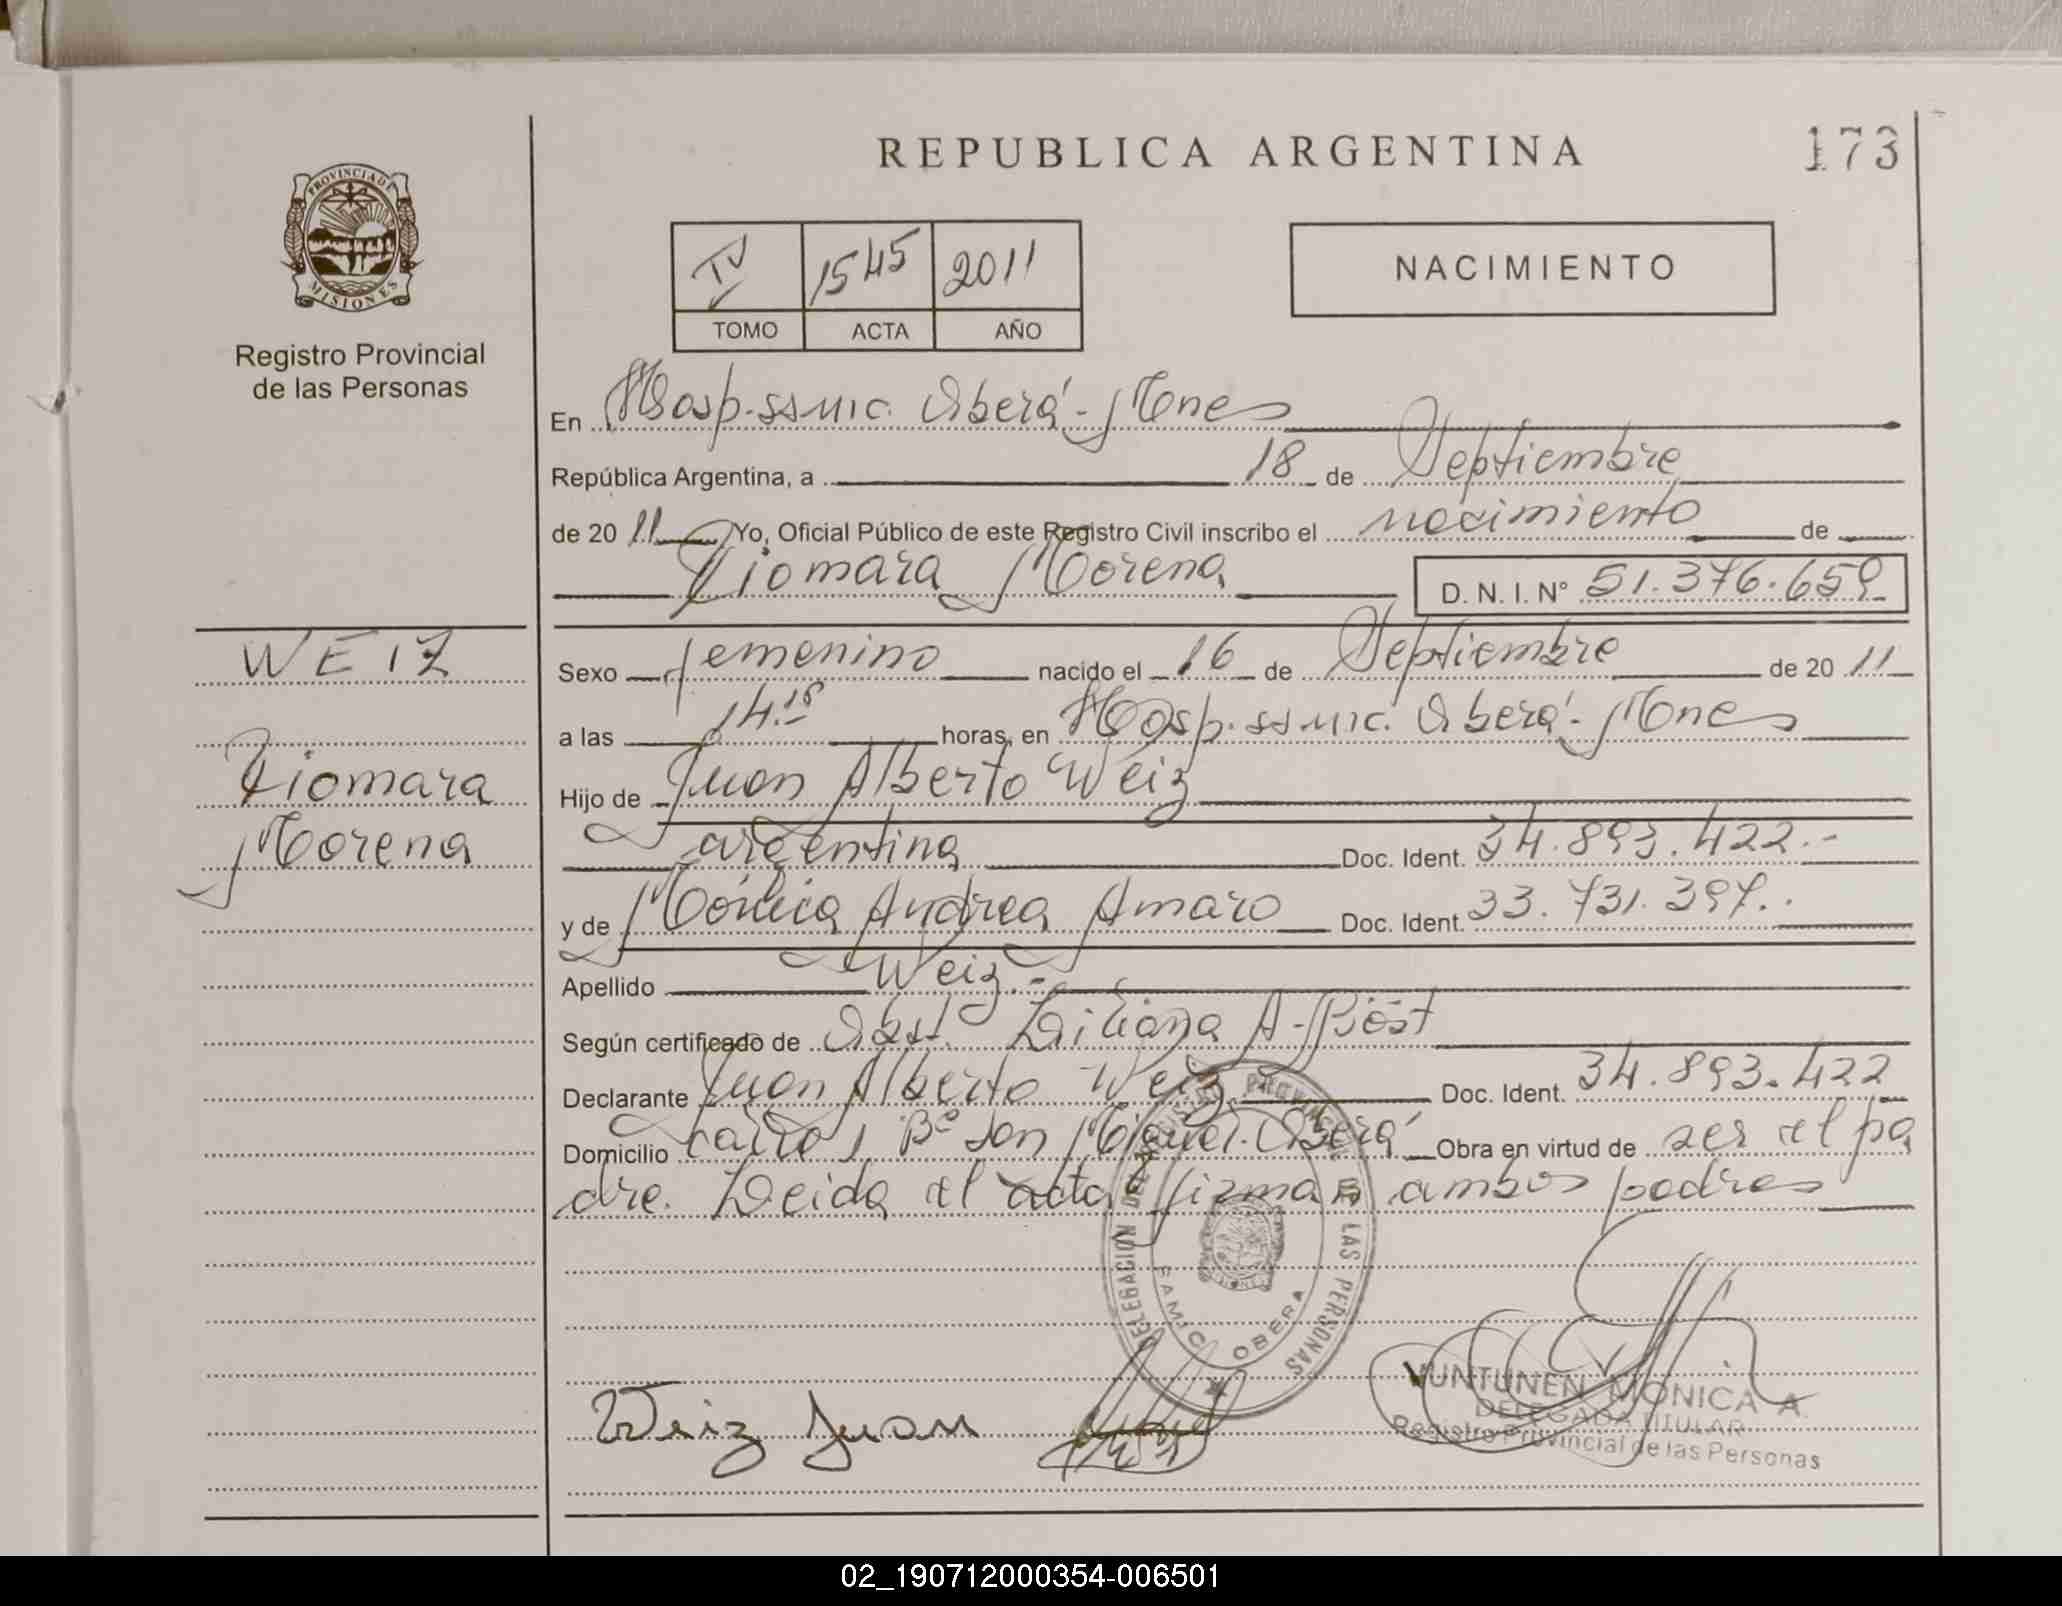 REPUBLICA ARGENTINA
173
PROVINCIA DE
MISIONES
Registro Provincial
de las Personas
IV 1545 2011
TOMO ACTA AÑO
NACIMIENTO
En Hosp. ssmic. Oberá - Mnes
República Argentina, a 18 de Septiembre
de 20 11 Yo, Oficial Público de este Registro Civil inscribo el nacimiento de
Xiomara Morena D. N. I. Nº 51.376.659
WEIZ
Xiomara
Morena
Sexo femenino nacido el 16 de Septiembre de 20 11
a las 14.15 horas, en Hosp. ssmic. Oberá - Mnes
Hijo de Juan Alberto Weiz
argentina Doc. Ident. 34.893.422.-
y de Mónica Andrea Amaro Doc. Ident. 33.731.397..
Apellido Weiz.-
Según certificado de Obst. Liliana A. Bost
Declarante Juan Alberto Weiz Doc. Ident. 34.893.422
Domicilio Bº San Miguel. Oberá Obra en virtud de ser el pa
dre. Leida el acta firman ambos padres
DELEGACION DEL REGISTRO PROVINCIAL DE LAS PERSONAS
SAMIC OBERA
Weiz Juan
VUNTUNEN MONICA A.
DELEGADA TITULAR
Registro Provincial de las Personas
02_190712000354-006501